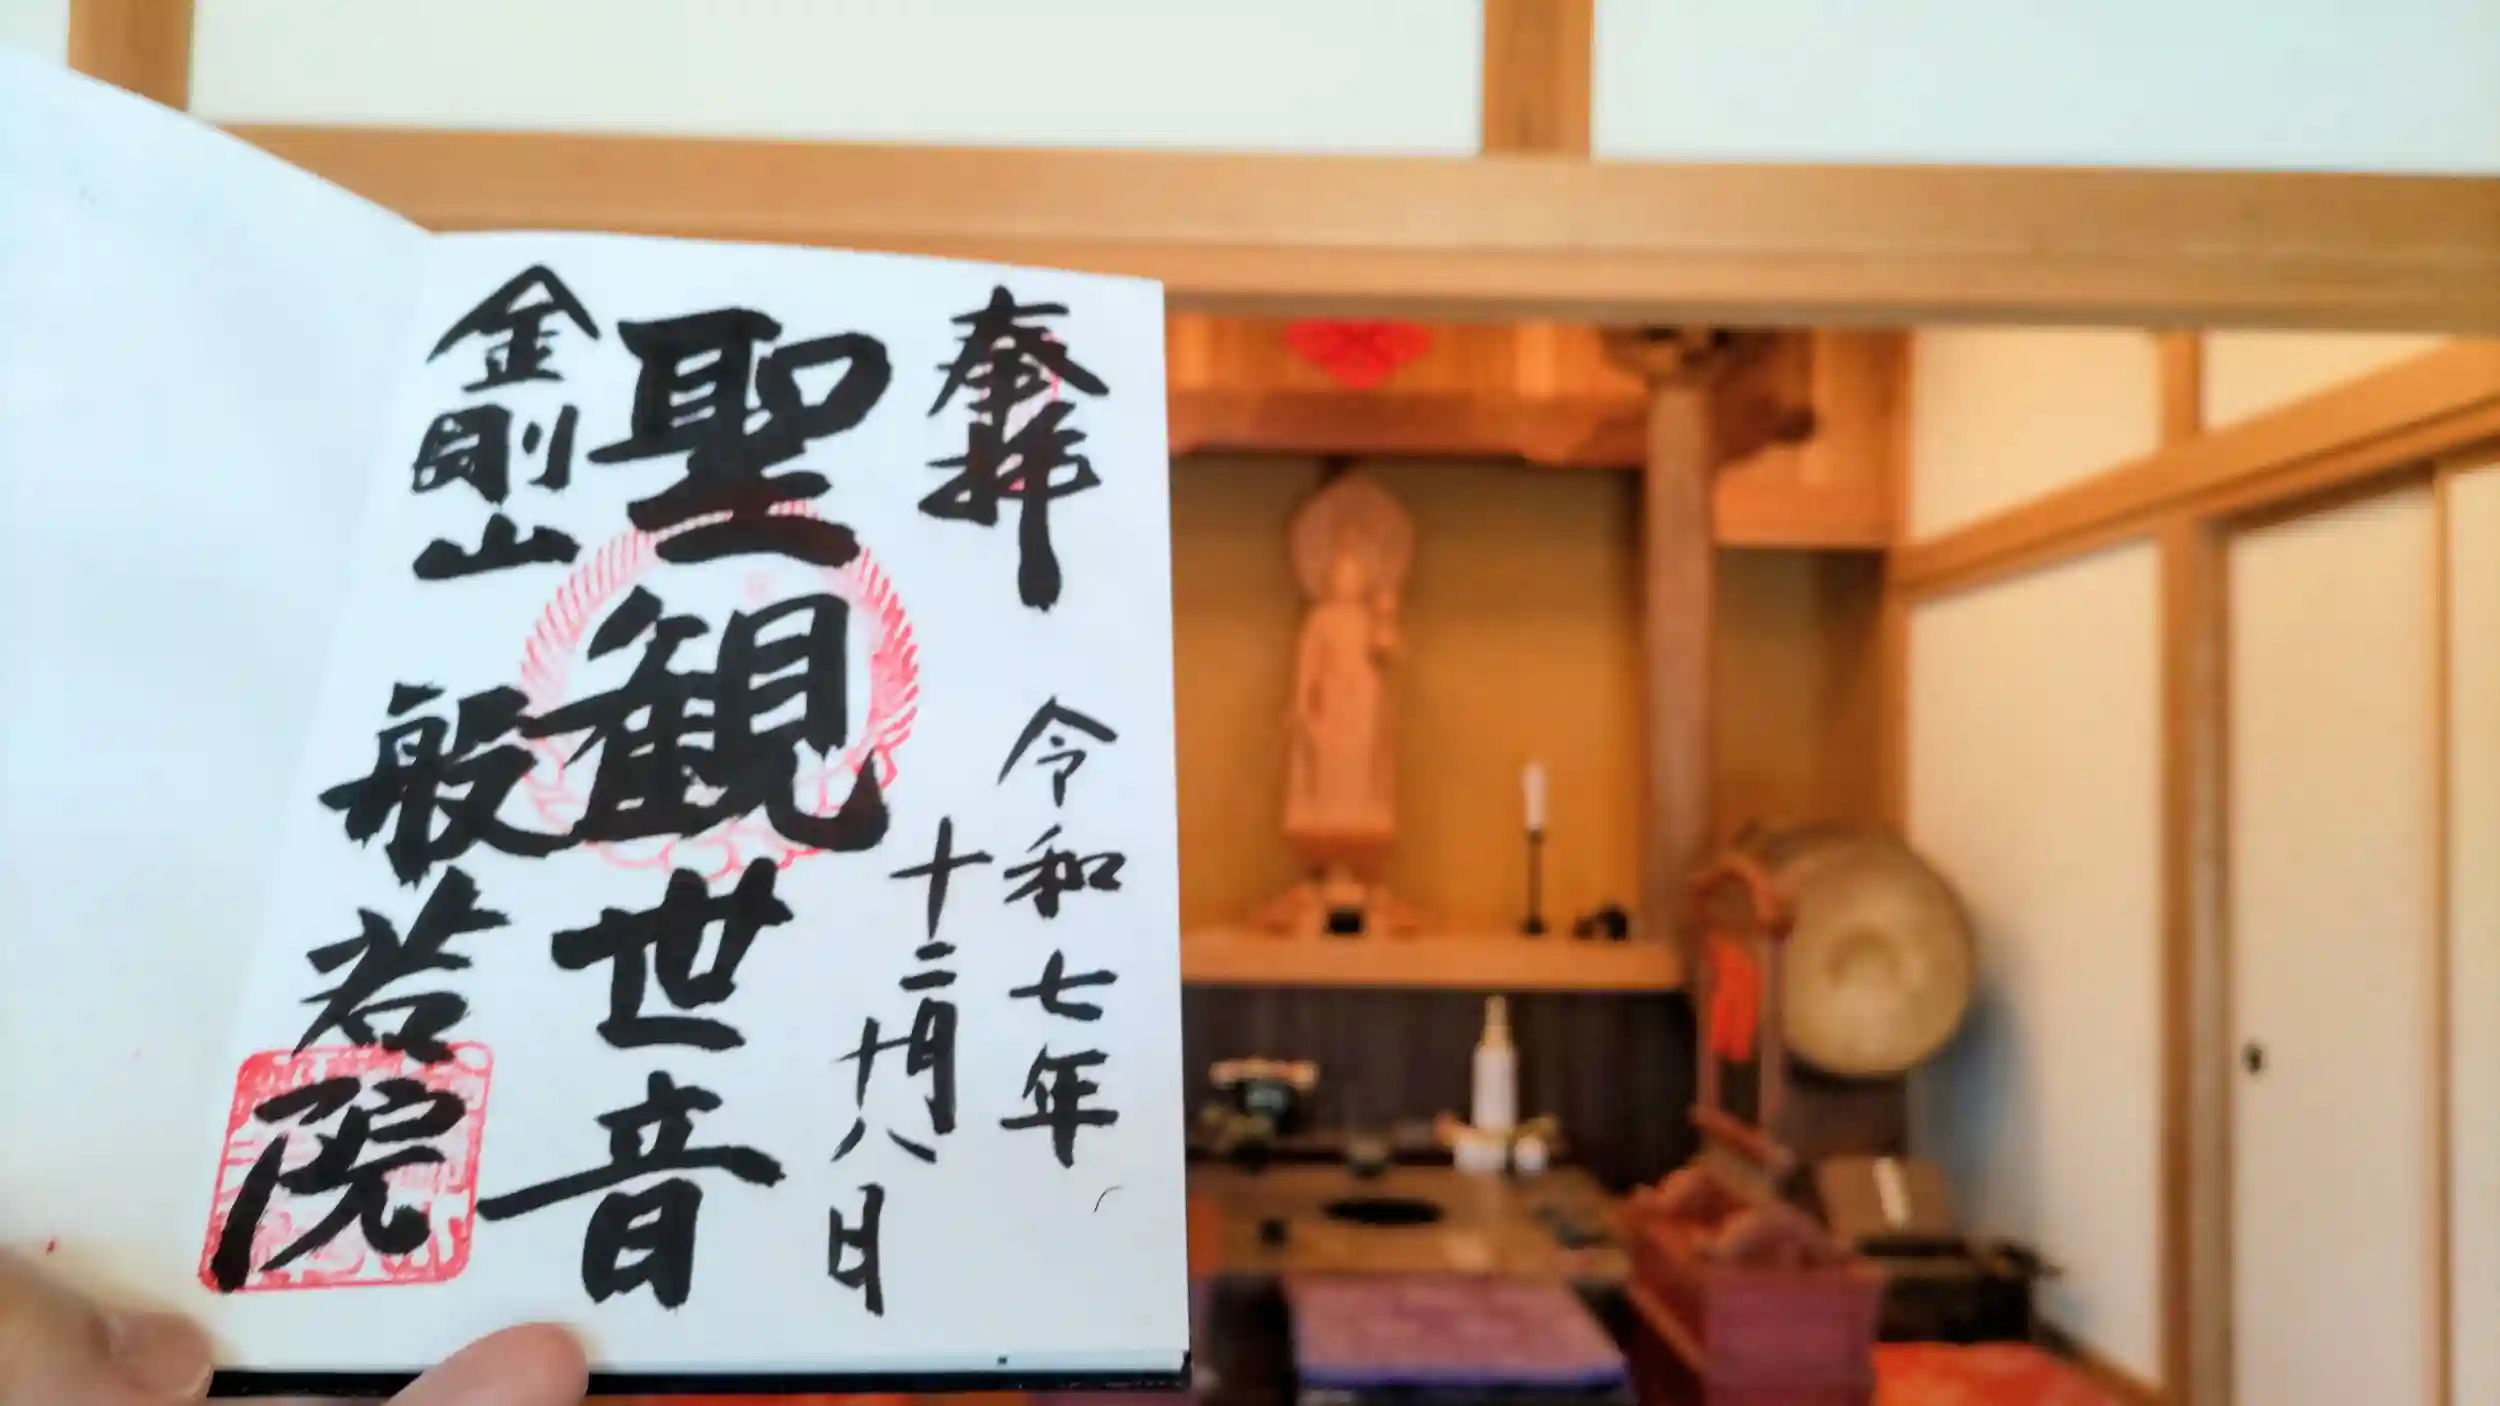 奉拝
令和七年
十二月
十八日
聖観世音
金剛山
般若院